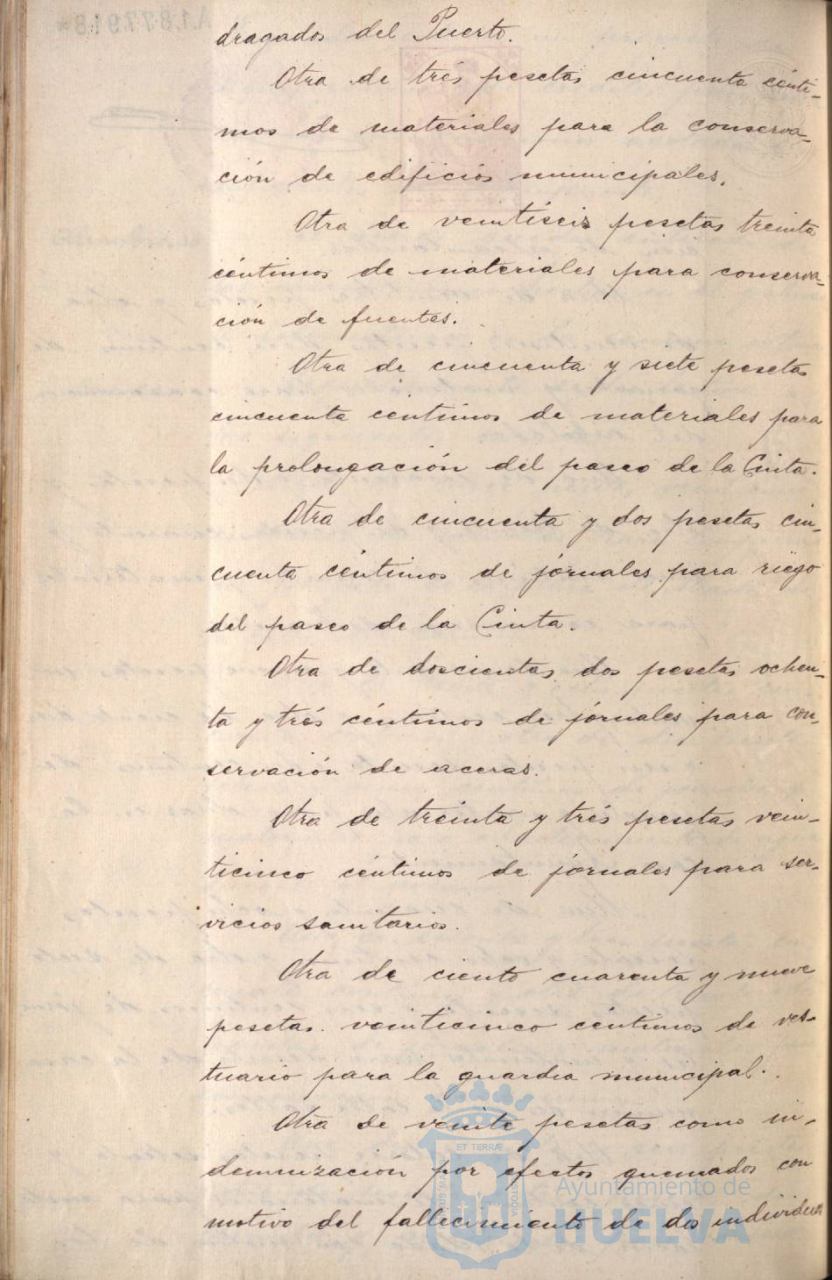 A.187.791.8*
dragados del Puerto.
Otra de trés pesetas cincuenta cénti-
mos de materiales para la conserva-
ción de edificios municipales.
Otra de veintiseis pesetas treinta
céntimos de materiales para conserva-
ción de fuentes.
Otra de cincuenta y siete pesetas
cincuenta céntimos de materiales para
la prolongación del paseo de la Cinta.
Otra de cincuenta y dos pesetas cin-
cuenta céntimos de jornales para riego
del paseo de la Cinta.
Otra de doscientas dos pesetas ochen-
ta y trés céntimos de jornales para con-
servación de aceras.
Otra de treinta y trés pesetas vein-
ticinco céntimos de jornales para ser-
vicios sanitarios.
Otra de ciento cuarenta y nueve
pesetas veinticinco céntimos de ves-
tuario para la guardia municipal.
Otra de veinte pesetas como in-
demnización por efectos quemados con
motivo del fallecimiento de dos individuos
ET TERRÆ
Ayuntamiento de
HUELVA